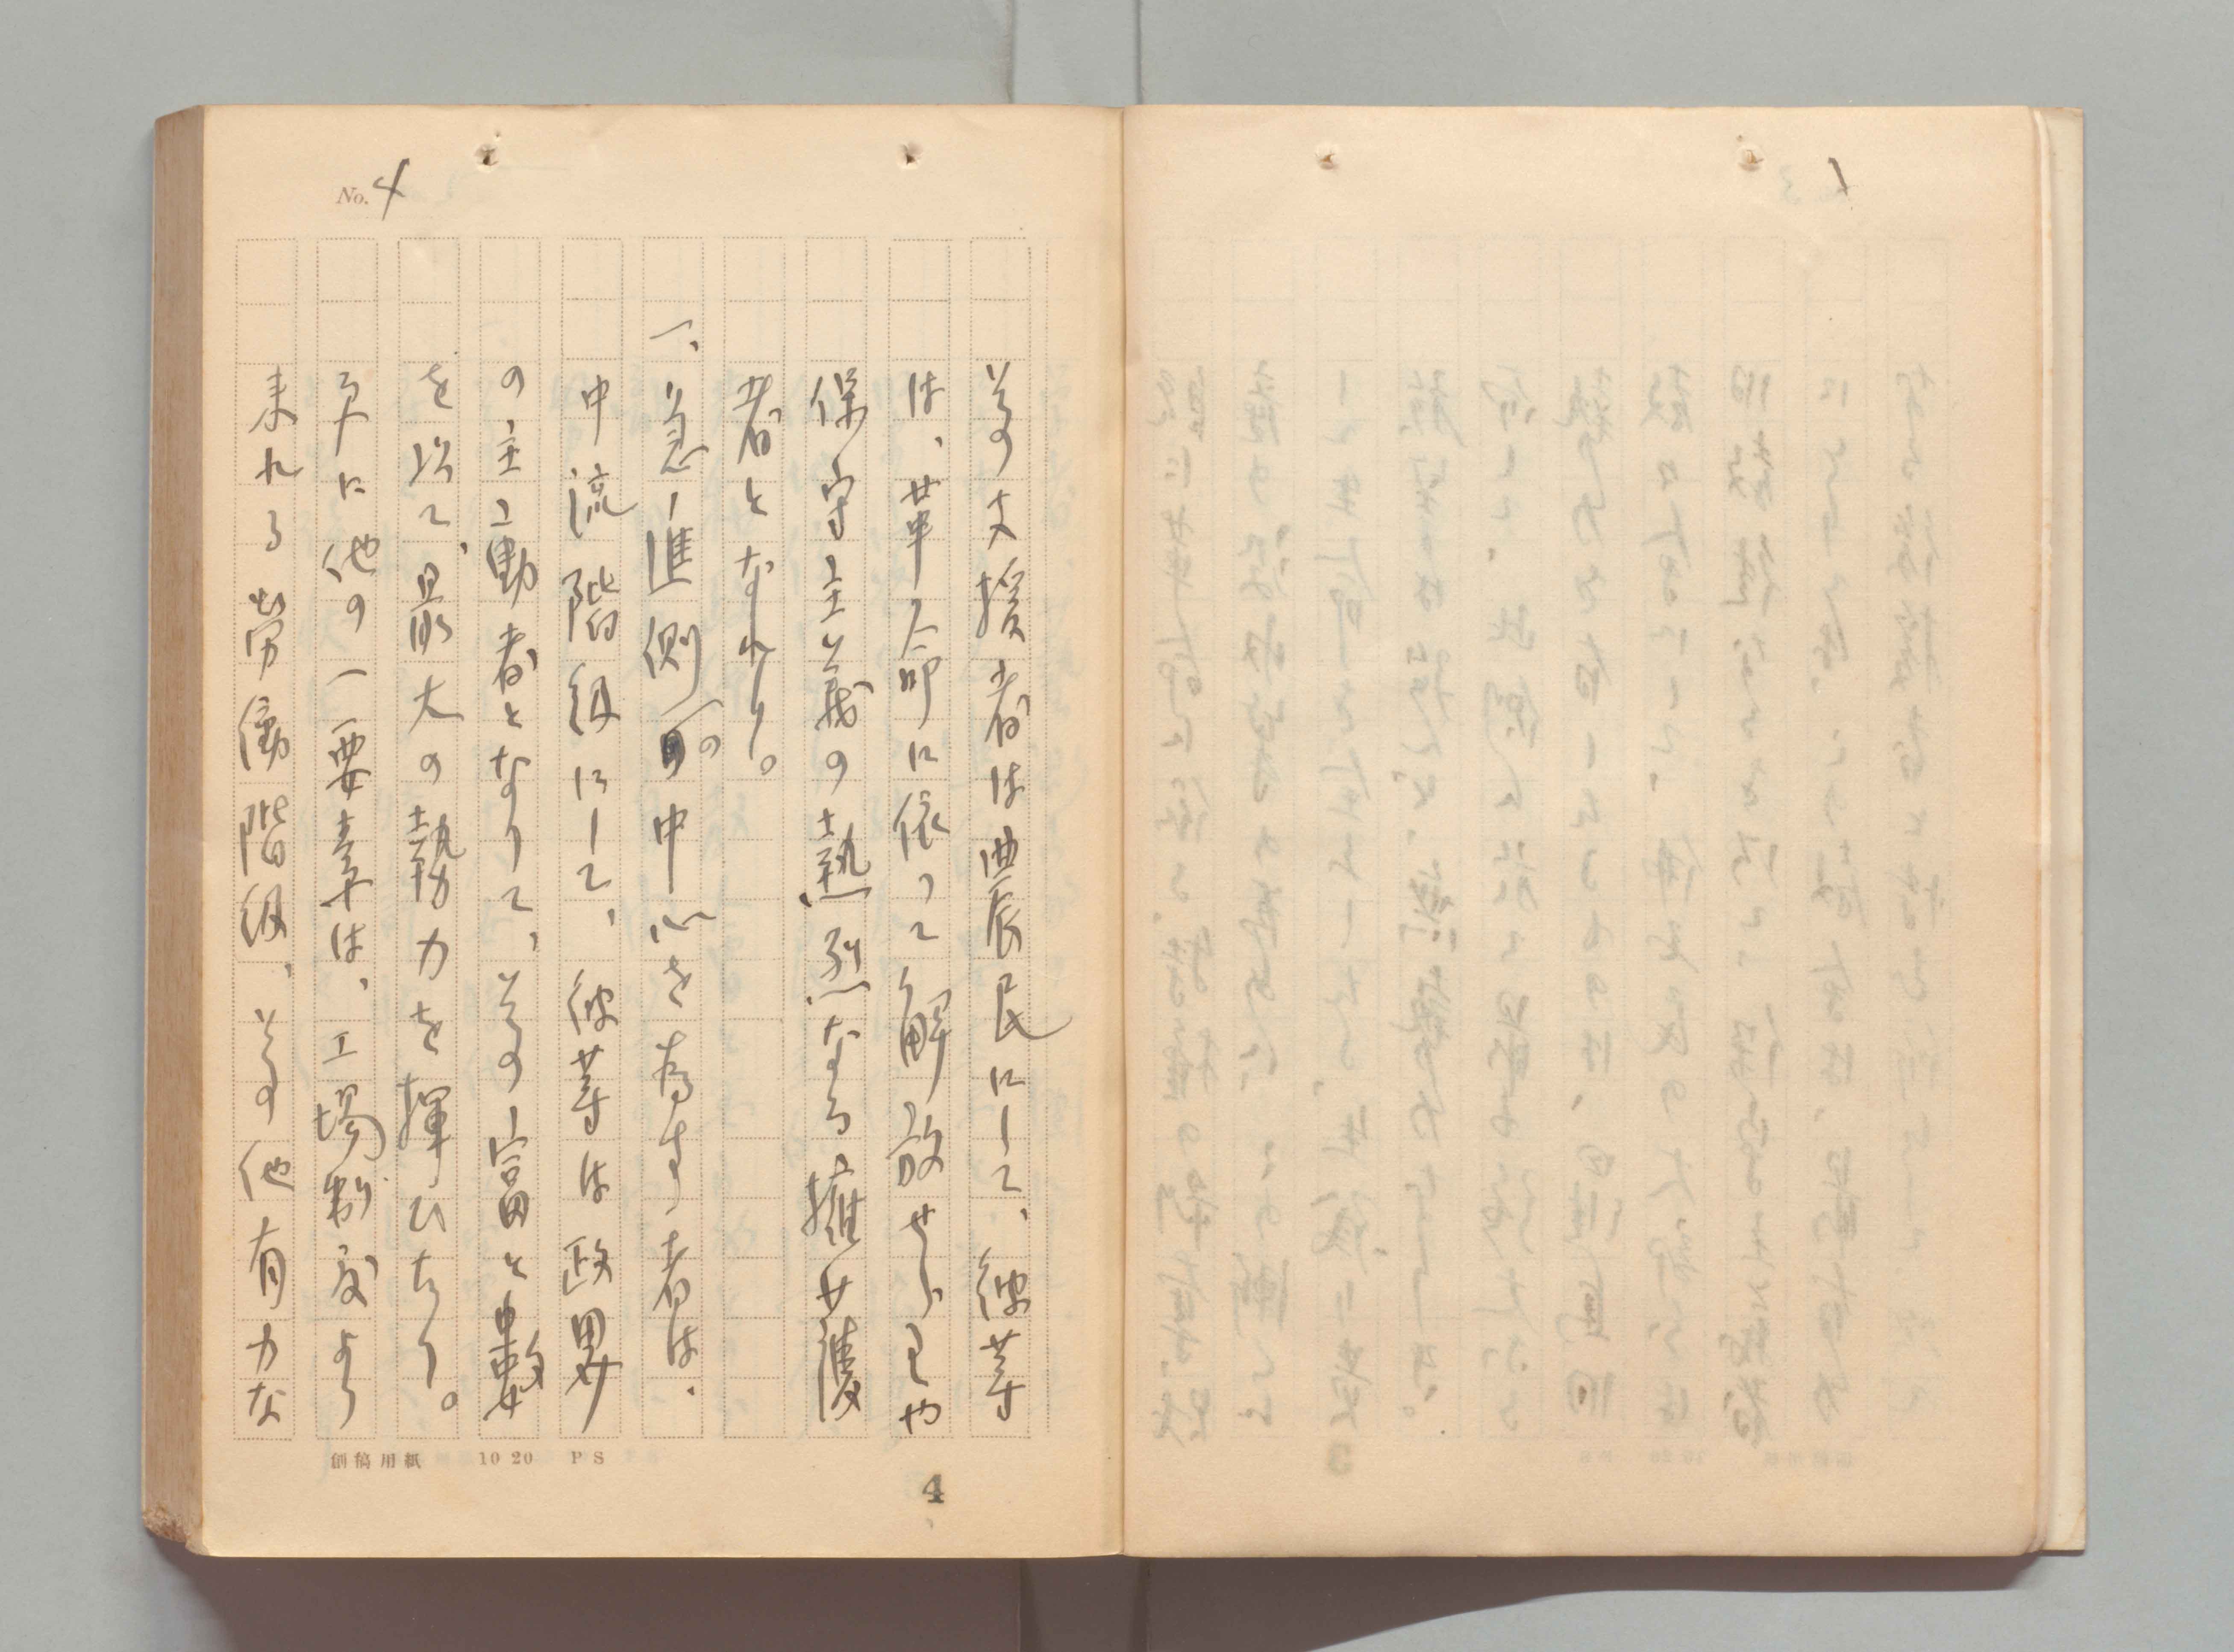 No. 4
その支援者は農民にして、彼等
は、革命に依つて解放せられや
保守主義の熱烈なる擁護
者となれり。
一、急進側の中心を為す者は、
中流階級にして、彼等は政界
の主動者となりて、その富と数
を以て、最大の勢力を揮ひたり。
早に他の一要素は、工場制度より
来れる労働階級、その他有力な
創稿用紙 10 20 PS
4
1